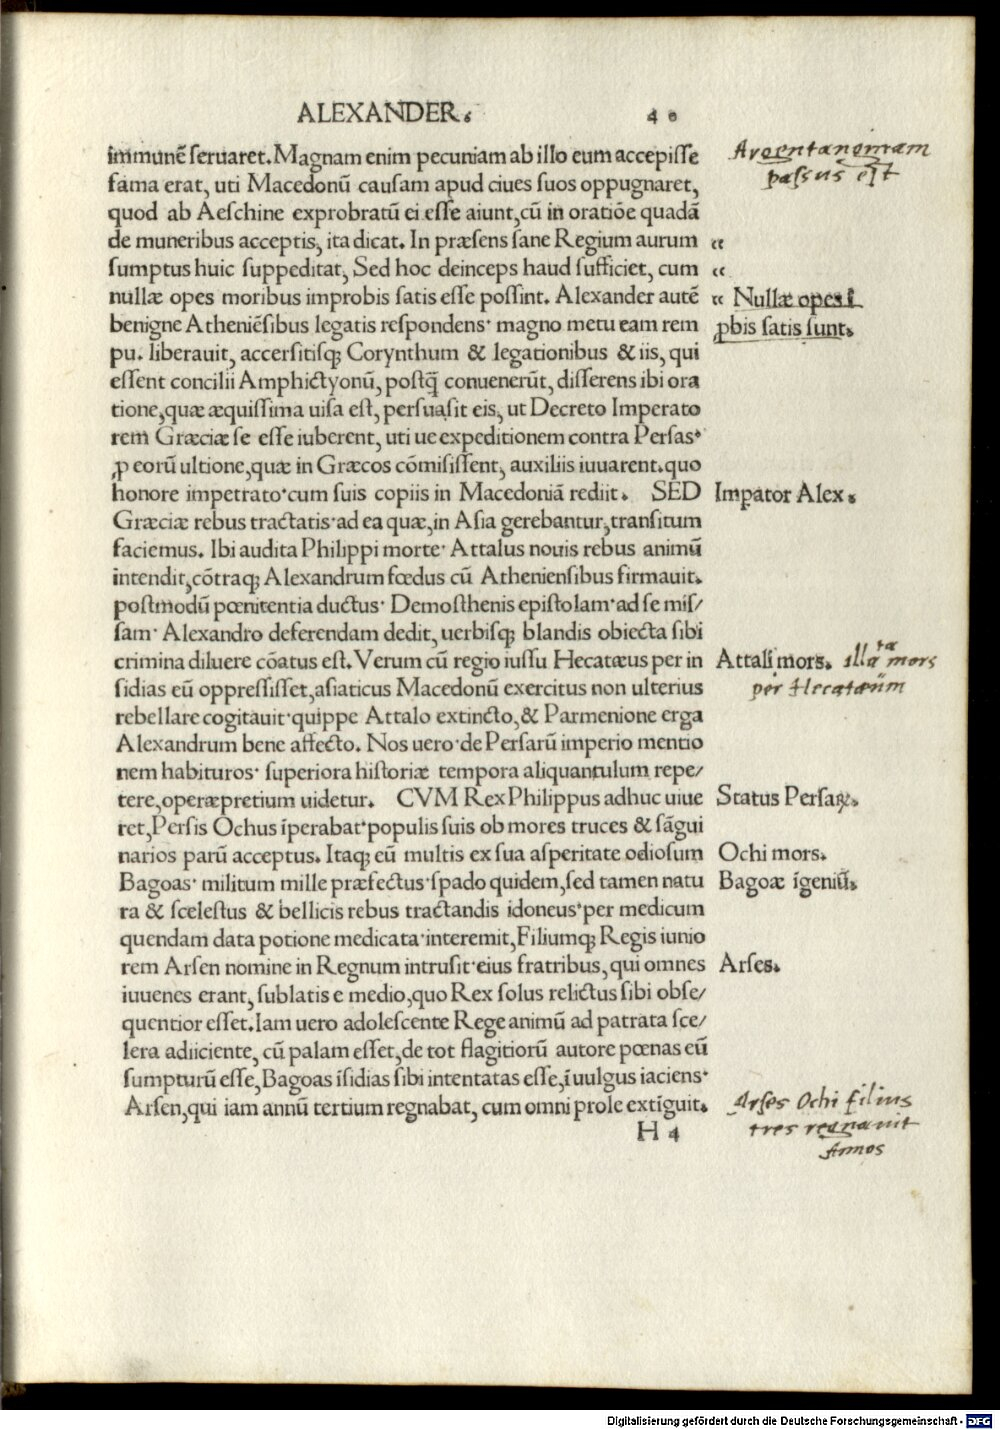 ALEXANDER. 40
immunē ſeruaret. Magnam enim pecuniam ab illo eum accepiſſe
fama erat, uti Macedonū cauſam apud ciues ſuos oppugnaret,
quod ab Aeſchine exprobratū ei eſſe aiunt, cū in oratiōe quadā
de muneribus acceptis, ita dicat. In præſens ſane Regium aurum
ſumptus huic ſuppeditat, Sed hoc deinceps haud ſufficiet, cum
nullæ opes moribus improbis ſatis eſſe poſſint. Alexander autē
benigne Atheniēſibus legatis reſpondens· magno metu eam rem
pu. liberauit, accerſitiſq; Corynthum & legationibus & iis, qui
eſſent concilii Amphictyonū, poſtq̄ conuenerūt, diſſerens ibi ora
tione, quæ æquiſſima uiſa eſt, perſuaſit eis, ut Decreto Imperato
rem Græciæ ſe eſſe iuberent, uti ue expeditionem contra Perſas·
ꝓ eorū ultione, quæ in Græcos cōmiſiſſent, auxiliis iuuarent. quo
honore impetrato· cum ſuis copiis in Macedoniā rediit. SED
Græciæ rebus tractatis· ad ea quæ, in Aſia gerebantur, tranſitum
faciemus. Ibi audita Philippi morte· Attalus nouis rebus animū
intendit, cōtraq; Alexandrum fœdus cū Athenienſibus firmauit.
poſtmodū pœnitentia ductus· Demoſthenis epiſtolam· ad ſe miſ/
ſam· Alexandro deferendam dedit, uerbiſq; blandis obiecta ſibi
crimina diluere cōatus eſt. Verum cū regio iuſſu Hecatæus per in
ſidias eū oppreſſiſſet, aſiaticus Macedonū exercitus non ulterius
rebellare cogitauit· quippe Attalo extincto, & Parmenione erga
Alexandrum bene affecto. Nos uero· de Perſarū imperio mentio
nem habituros· ſuperiora hiſtoriæ tempora aliquantulum repe/
tere, operæpretium uidetur. CVM Rex Philippus adhuc uiue
ret, Perſis Ochus īperabat· populis ſuis ob mores truces & ſāgui
narios parū acceptus. Itaq; eū multis ex ſua aſperitate odioſum
Bagoas· militum mille præfectus· ſpado quidem, ſed tamen natu
ra & ſceleſtus & bellicis rebus tractandis idoneus· per medicum
quendam data potione medicata· interemit, Filiumq; Regis iunio
rem Arſen nomine in Regnum intruſit· eius fratribus, qui omnes
iuuenes erant, ſublatis e medio, quo Rex ſolus relictus ſibi obſe/
quentior eſſet. Iam uero adoleſcente Rege animū ad patrata ſce/
lera adiiciente, cū palam eſſet, de tot flagitiorū autore pœnas eū
ſumpturū eſſe, Bagoas īſidias ſibi intentatas eſſe, ī uulgus iaciens·
Arſen, qui iam annū tertium regnabat, cum omni prole extīguit.
H 4
Argentanginam
paſsus eſt
“
“
“ Nullæ opes ī
ꝓbis ſatis ſunt.
Imꝑator Alex.
Attali mors. illa ta mors
per Hecatæūm
Status Perſaꝝ.
Ochi mors.
Bagoæ īgeniū.
Arſes.
Arſes Ochi filius
tres regnauit
Annos
Digitalisierung gefördert durch die Deutsche Forschungsgemeinschaft - DFG